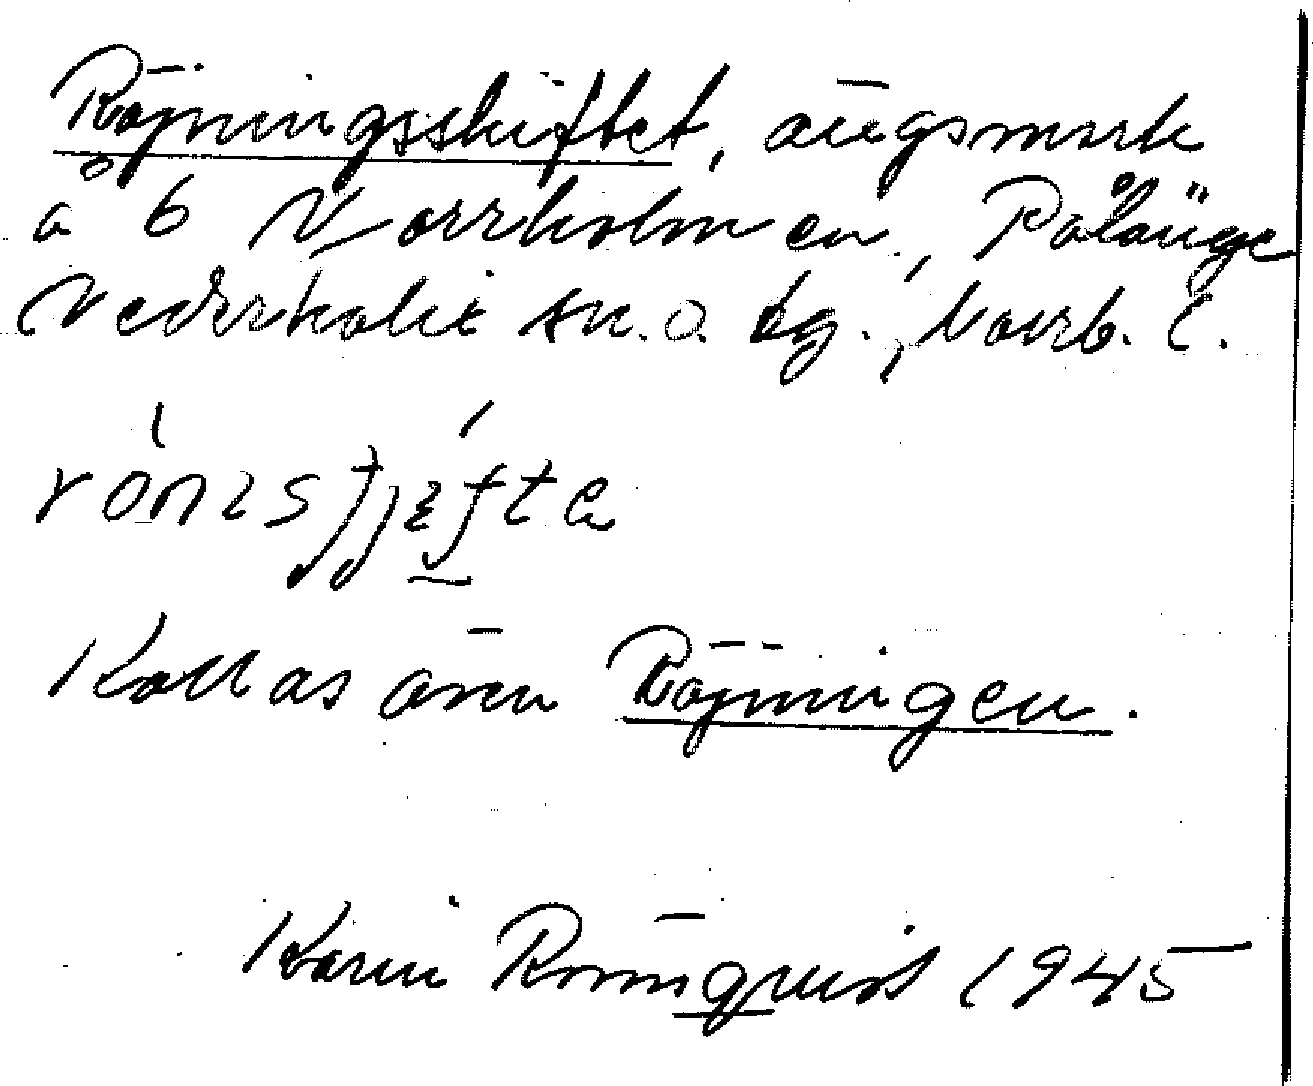 Röjningsskiftet, ängsmark
å 6 Norrholmen, Pålänge
Nederkalix sn. o. tg., Norrb. l.
Kallas även Röjningen.
Karin Rönnqvist 1945